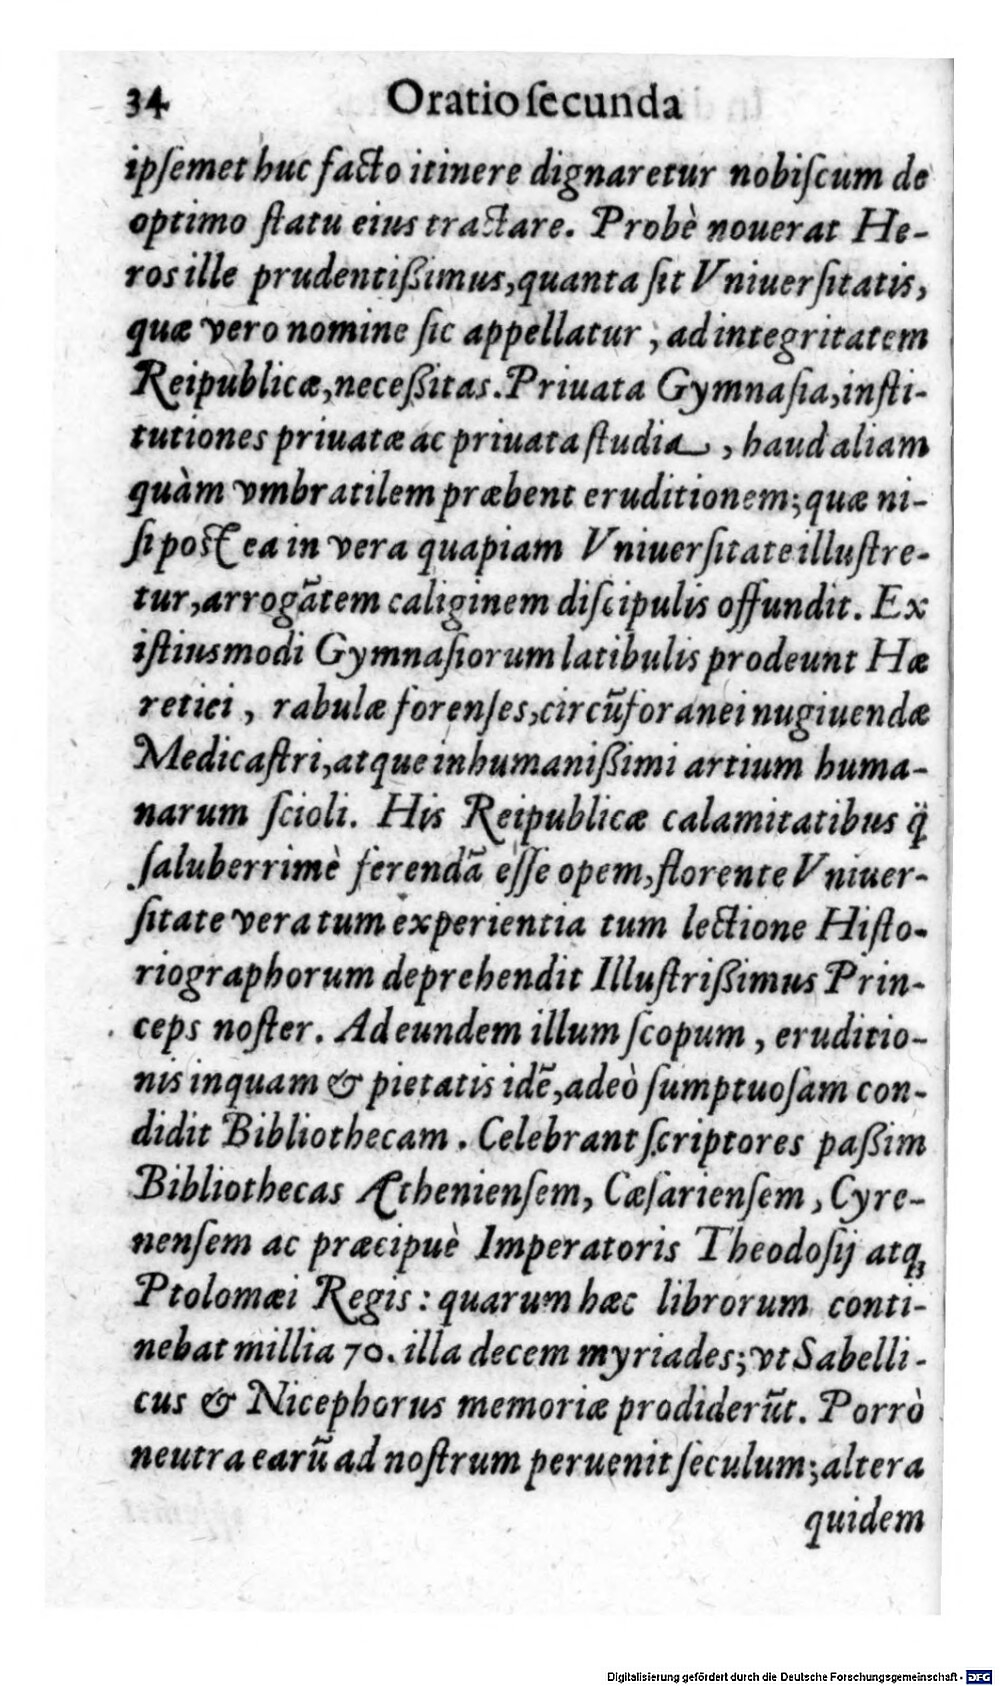 34 Oratio ſecunda
ipſemet huc facto itinere dignaretur nobiſcum de
optimo ſtatu eius tractare. Probè nouerat He-
ros ille prudentißimus, quanta ſit Vniuerſitatis,
quæ vero nomine ſic appellatur, ad integritatem
Reipublicæ, neceßitas. Priuata Gymnaſia, inſti-
tutiones priuatæ ac priuata ſtudia, haud aliam
quàm vmbratilem præbent eruditionem; quæ ni-
ſi poſt ea in vera quapiam Vniuerſitate illuſtre-
tur, arrogãtem caliginem diſcipulis offundit. Ex
iſtiusmodi Gymnaſiorum latibulis prodeunt Hæ
retici, rabulæ forenſes, circũforanei nugiuendæ
Medicaſtri, atque inhumanißimi artium huma-
narum ſcioli. His Reipublicæ calamitatibus q̃
ſaluberrimè ferendã eſſe opem, florente Vniuer-
ſitate vera tum experientia tum lectione Hiſto-
riographorum deprehendit Illuſtrißimus Prin-
ceps noſter. Ad eundem illum ſcopum, eruditio-
nis inquam & pietatis idẽ, adeò ſumptuoſam con-
didit Bibliothecam. Celebrant ſcriptores paßim
Bibliothecas Æthenienſem, Cæſarienſem, Cyre-
nenſem ac præcipuè Imperatoris Theodoſij atq;
Ptolomæi Regis: quarum hæc librorum conti-
nebat millia 70. illa decem myriades; vt Sabelli-
cus & Nicephorus memoriæ prodiderũt. Porrò
neutra earũ ad noſtrum peruenit ſeculum; altera
quidem
Digitalisierung gefördert durch die Deutsche Forschungsgemeinschaft - DFG